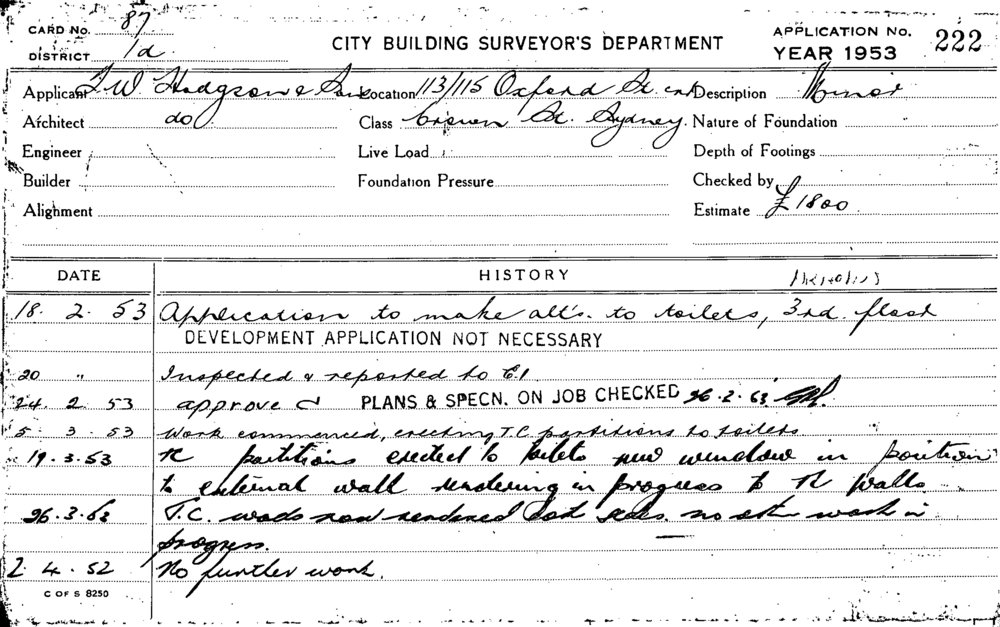 CARD No. 87
DISTRICT 1d
CITY BUILDING SURVEYOR'S DEPARTMENT
APPLICATION No.
YEAR 1953
222
Applicant F.W. Hodgson & Sons Location 113/115 Oxford St. and Description Minor
Architect do Class Crown St. Sydney. Nature of Foundation
Engineer Live Load Depth of Footings
Builder Foundation Pressure Checked by
Alignment Estimate £1800
DATE HISTORY
18. 2. 53 Application to make alts. to toilets, 3rd. floor
DEVELOPMENT APPLICATION NOT NECESSARY
20 " Inspected & reported to
24. 2. 53 approved PLANS & SPECN. ON JOB CHECKED 26.2.53
5. 3. 53 Work commenced, erecting T.C. partitions to toilets
19.3.53 partitions erected to toilets new window in position
to external wall rendering in progress to walls
26.3.53 T.C. now rendered both sides. no other work in
progress.
2. 4. 52 No further work.
C OF S 8250